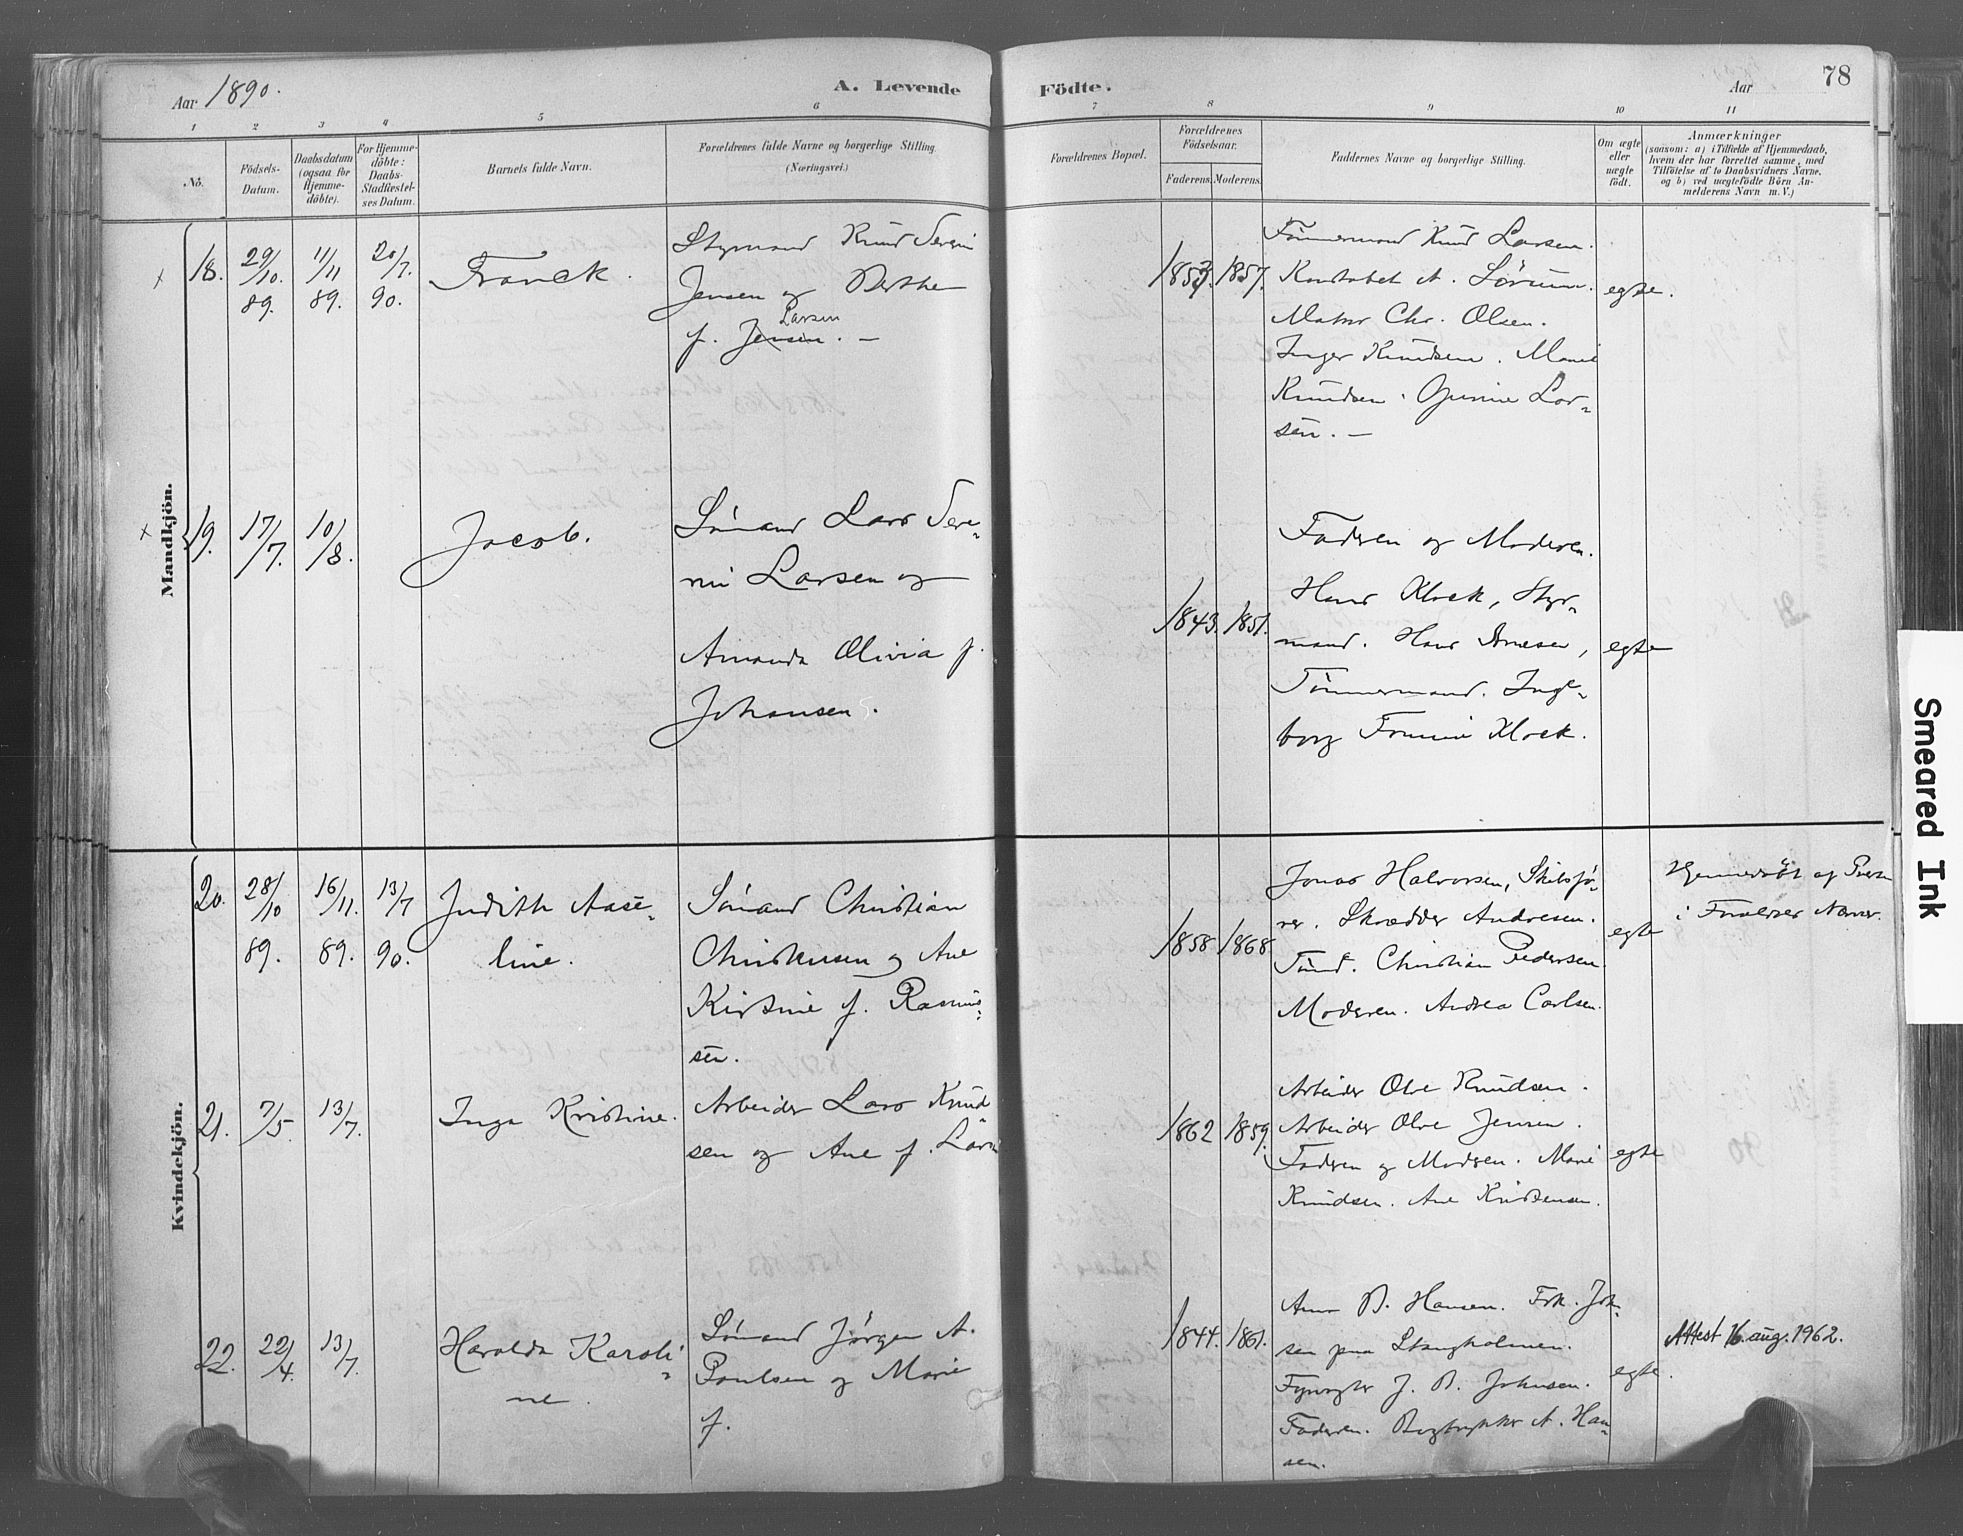 Aar 1890.
A. Levende Födte.
Aar
78
1 2 3 4 5 6 7 8 9 10 11
No.
Födsels-
Datum.
Daabsdatum
(ogsaa for
Hjemme-
döbte).
For Hjemme-
döbte:
Daabs-
Stadfæstel-
ses Datum.
Barnets fulde Navn.
Forældrenes fulde Navne og borgerlige Stilling
(Næringsvei.)
Forældrenes Bopæl.
Forældrenes
Födselsaar.
Faderens. Moderens.
Faddernes Navne og borgerlige Stilling.
Om ægte
eller
uægte
födt.
Anmærkninger
(saasom: a) i Tilfælde af Hjemmedaab,
hvem der har forrettet samme, med
Tilföielse af to Daabsvidners Navne,
og b) ved uægtefödte Börn An-
melderens Navn m. V.)
Mandkjön.
18. 29/10. 89. 11/11 89. 20/7. 90.
Franck.
Styrmand Knud Severin
Jensen og Berthe
f. Jensen. Larsen —
1853. 1857.
Tömmermand Knud Larsen.
Konstabel A. Sörum.
Matros Chr. Olsen.
Inger Knudsen. Marie
Knudsen. Gurine Lar-
sen. —
egte.
19. 17/7. 10/8.
Jacob.
Sömand Lars Seve-
rin Larsen og
Amanda Olivia f.
Johansen.
1843. 1851.
Faderen og Moderen.
Hans Klock, Styr-
mand. Hans Arnesen,
Tömmermand. Inge-
borg Klock.
egte
Kvindekjön.
20. 28/10 89. 16/11. 89. 13/7 90.
Judith Aase-
line.
Sömand Christian
Christensen og Ane
Kirstine f. Rasmus-
sen.
1858 1868
Jonas Halvorsen, Skibsfö-
rer. Skrædder Andresen.
Christian Pedersen.
Moderen. Andrea Carlsen.
egte
Hjemmedöbt af
i Forældres Nærvær.
21. 7/5. 13/7.
Inga Kristine.
Arbeider Lars Knud
sen og Ane f. Lars
1862 1859.
Arbeider Ole Knudsen.
Arbeider Ole Jensen.
Faderen og Moderen. Marie
Knudsen. Ane Kristensen.
egte
22. 22/4. 13/7.
Haralda Karoli-
ne.
Sömand Jörgen A.
Paulsen og Marie
f.
1844. 1861.
Anna B. Hansen. Frk. Joh-
sen paa Stangholmen.
Fyrvogter J. B. Johnsen.
Faderen. Bogtrykker A. Han-
sen.
egte.
Attest 16. aug. 1962.
Smeared Ink